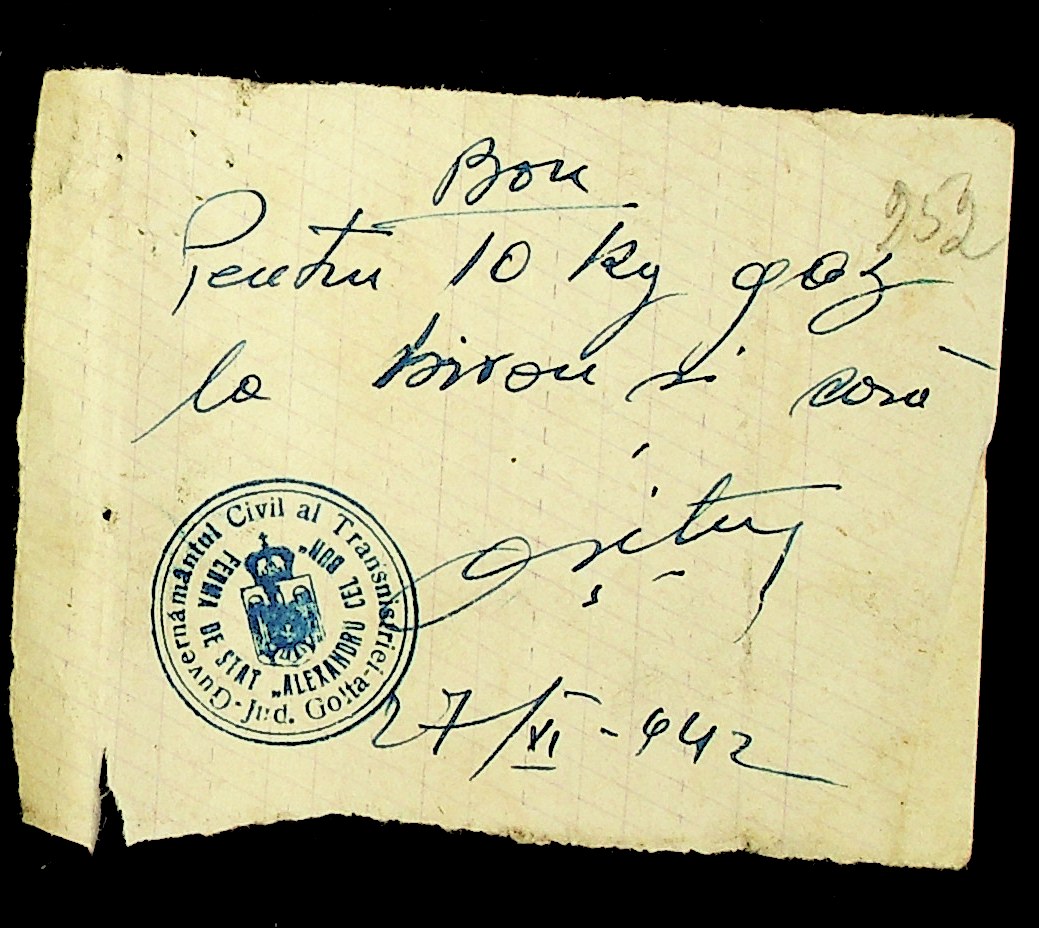 Bon
252
Pentru 10 kg gaz
la birou și casă
27/XI-942
Guvernământul Civil al Transnistriei-Jud. Golta-
FERMA DE STAT „ALEXANDRU CEL BUN"